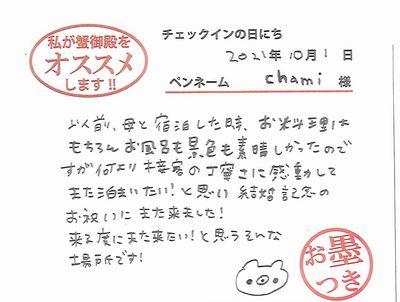 私が蟹御殿を
オススメ
します!!
チェックインの日にち
2021年10月1日
ペンネーム chami 様
以前、母と宿泊した時、お料理は
もちろんお風呂も景色も素晴しかったので
すが何より接客の丁寧さに感動して
また泊まいたい!と思い結婚記念の
お祝いにまた来ました!
来る度にまた来たい!と思うそんな
場所です!
お墨
つき